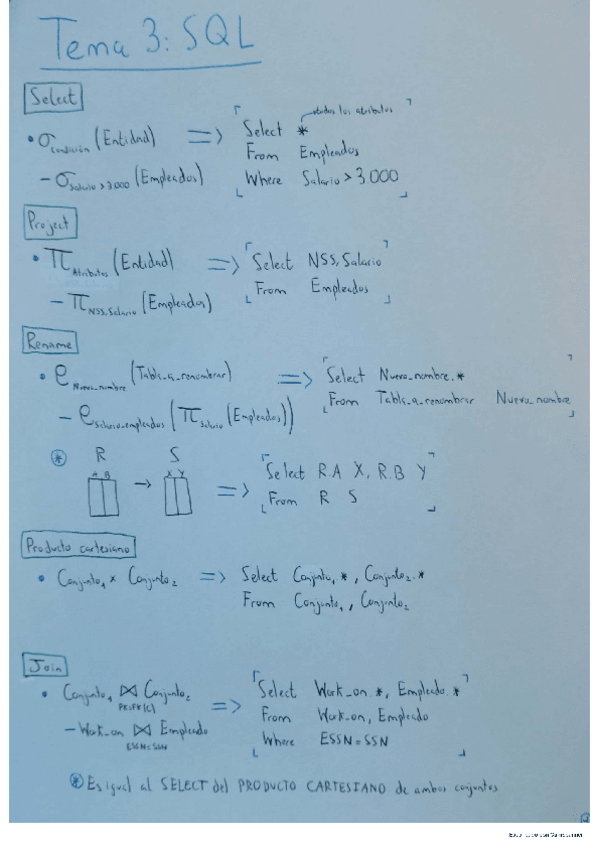 Tema 3: SQL
Select
• σcondición (Entidad) => Select * → todos los atributos
From Empleados
– σSalario > 3.000 (Empleados) Where Salario > 3.000
Project
• πAtributos (Entidad) => Select NSS, Salario
From Empleados
– πNSS, Salario (Empleados)
Rename
• ρNuevo_nombre (Tabla_a_renombrar) => Select Nuevo_nombre.*
From Tabla_a_renombrar Nuevo_nombre
– ρSalario_empleados (πSalario (Empleados))
* R S
A B → X Y => Select R.A X, R.B Y
From R S
Producto cartesiano
• Conjunto1 × Conjunto2 => Select Conjunto1.*, Conjunto2.*
From Conjunto1, Conjunto2
Join
• Conjunto1 ⋈PK=FK(C) Conjunto2 => Select Work_on.*, Empleado.*
From Work_on, Empleado
– Work_on ⋈ESSN=SSN Empleado Where ESSN=SSN
* Es igual al SELECT del PRODUCTO CARTESIANO de ambos conjuntos